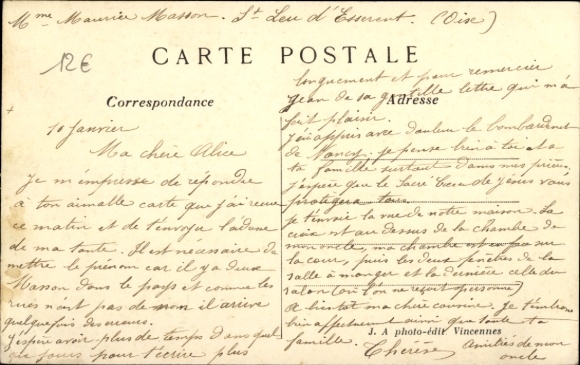 Mme Maurice Masson. St Leu d'Esserent. (Oise)
CARTE POSTALE
12€
Correspondance
Adresse
10 Janvier
Ma chère Alice
Je m'empresse de répondre
à ton aimable carte que j'ai reçue
ce matin et de t'envoyer l'adresse
de ma tante. Il est nécessaire de
mettre le prénom car il y a deux
Masson dans le pays et comme les
rues n'ont pas de nom il arrive
quelquefois des erreurs.
J'espère avoir plus de temps dans quel
ques jours pour t'écrire plus
longuement et pour remercier
Jean de sa gentille lettre qui m'a
fait plaisir.
J'ai appris avec douleur le bombardment
de Nancy. Je pense bien à toi et à
ta famille surtout dans mes prières.
J'espère que le Sacré Cœur de Jésus vous
protègera tous.
Je t'envoie la vue de notre maison. La
croix est au dessus de la chambre de
mon oncle, ma chambre est en pas sur
la cour, puis les deux fenêtres de la
salle à manger et la dernière celle du
salon (où l'on ne reçoit personne)
A bientôt ma chère cousine. Je t'embrasse
bien affectueusement ainsi que toute ta
famille.
J. A photo-édit. Vincennes
Thérèse
Amitiés de mon
oncle